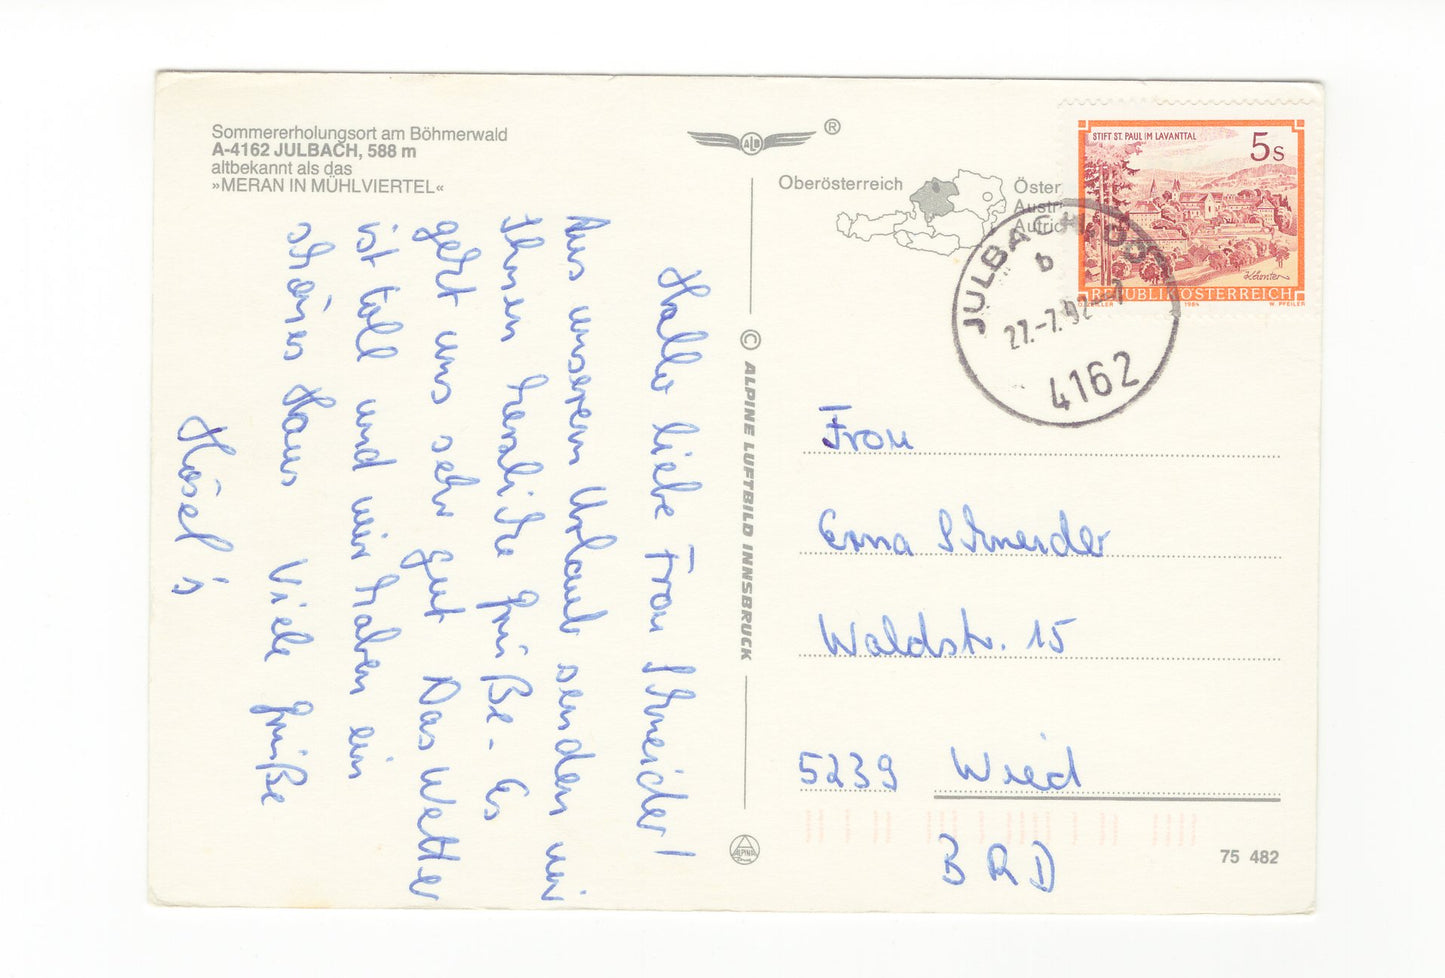 Sommererholungsort am Böhmerwald
A-4162 JULBACH, 588 m
altbekannt als das
»MERAN IN MÜHLVIERTEL«
Hallo liebe Frau Schneider!
Aus unserem Urlaub senden wir
Ihnen herzliche Grüße. Es
geht uns sehr gut Das Wetter
ist toll und wir haben ein
schönes Haus Viele Grüße
Hösel's
© ALPINE LUFTBILD INNSBRUCK
ALPINA
ALB
®
Oberösterreich
Öster
Austr
Autric
STIFT ST. PAUL IM LAVANTTAL
5 S
REPUBLIK ÖSTERREICH
1984
W. PFEILER
JULBACH
b
27.-7.92-7
4162
Frau
Erna Schneider
Waldstr. 15
5239 Wied
BRD
75 482